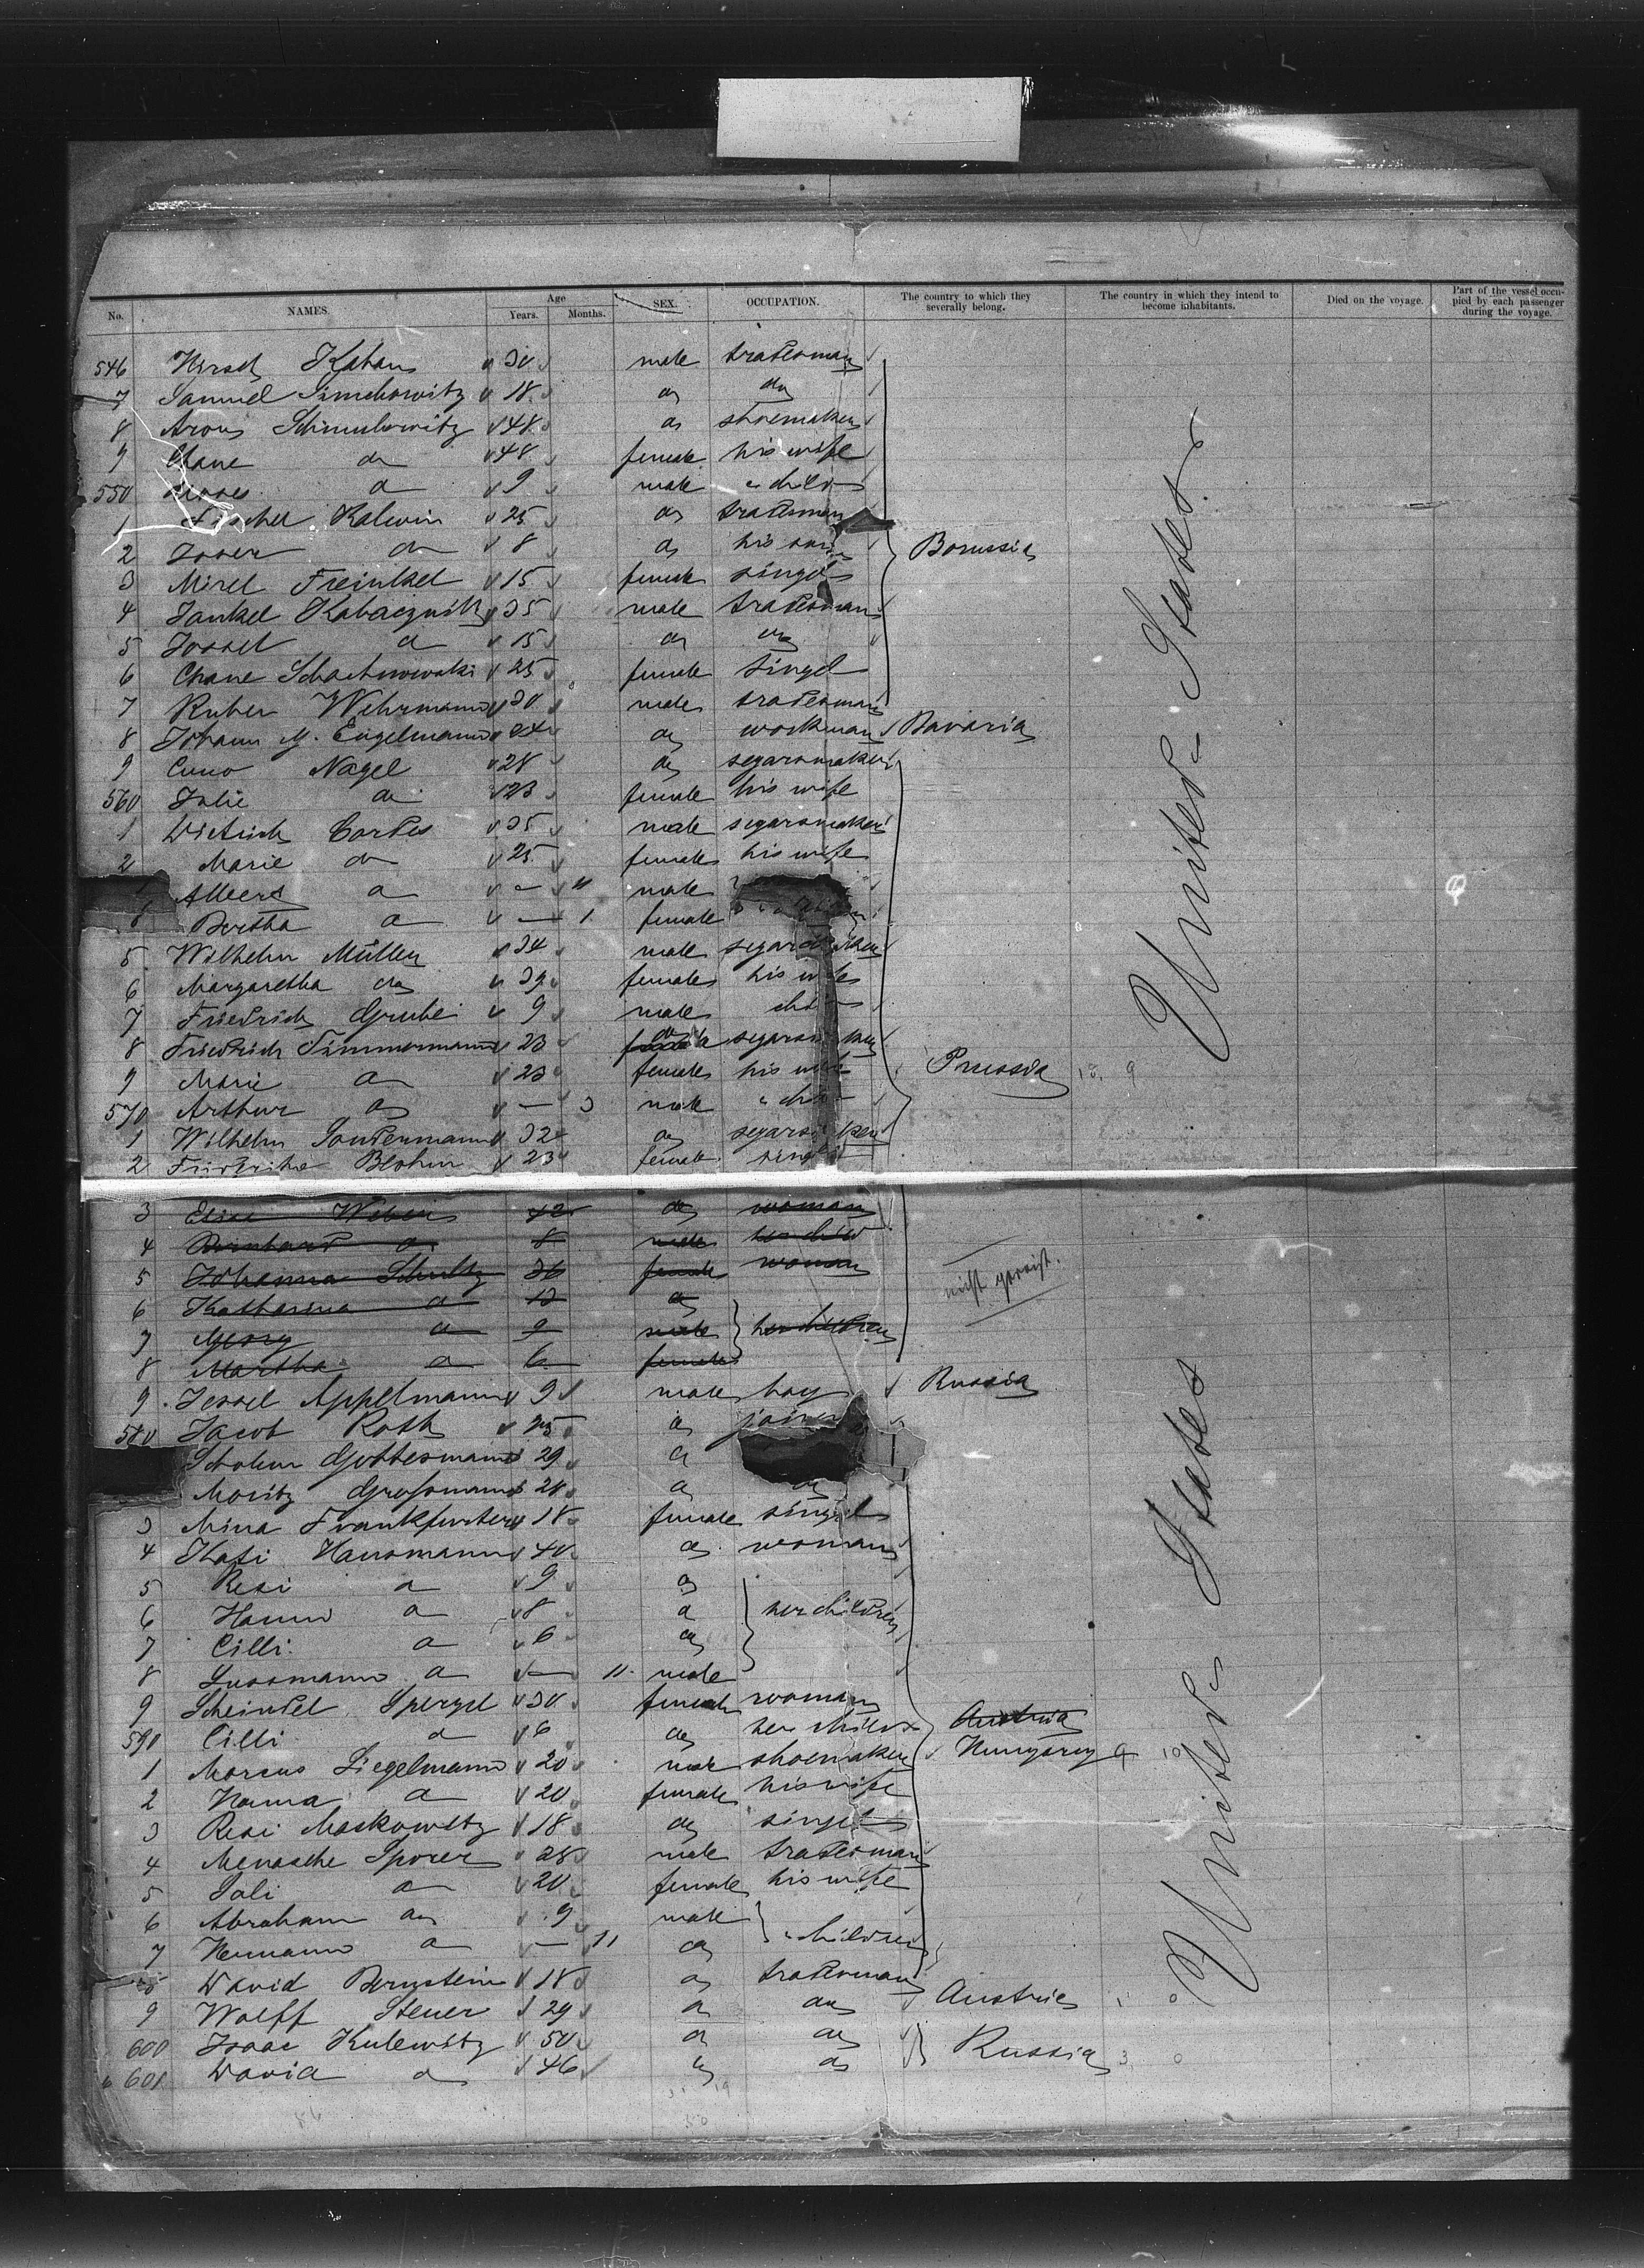 No. NAMES. Age Years. Months. SEX. OCCUPATION. The country to which they severally belong. The country in which they intend to become inhabitants. Died on the voyage. Part of the vessel occupied by each passenger during the voyage.
546 Hirsch Kahan 30 male tradesman
7 Samuel Simchowitz 18 do do
8 Aron Schmulowitz 48 do shoemaker
9 Chane do 48 female his wife
550 do 9 male child
1 Fischel Kalwin 25 do tradesman
2 Josser do 8 do his son Borussia
3 Mirel Freinkel 15 female singel
4 Jankel Kabacznik 35 male tradesman
5 Jossel do 15 do do
6 Chane Schachnowski 25 female singel
7 Ruben Wehrmann 30 male tradesman
8 Johann M. Engelmann 24 do workman Bavaria
9 Cuno Nagel 28 do segarsmaker
560 Julie do 23 female his wife
1 Dietrich Cordes 35 male segarsmaker
2 Marie do 25 female his wife
Albert do — 11 male
Bertha do — 1 female
5 Wilhelm Müller 34 male
6 Margaretha do 39 female his wife
7 Friedrich Grube 9 male child
8 Friedrich Timmermann 23 do
9 Marie do 23 female his wife Prussia 9
570 Arthur do — 3 male child
1 Wilhelm Sondermann 32 do
2 Friedrike Blohm 23 female singel
3 Elise Weber 42 do woman
4 Bernhard do 8 male her child
5 Johanna Schultz 36 female woman nicht gereist.
6 Katharina do 13 do
7 Georg do 9 male her children
8 Martha do 6 female
9 Jessel Appelmann 9 male boy Russia
580 Jacob Roth 25 do joiner
Scholem Gottesmann 29 do
Moritz Großmann 28 do do
3 Mina Frankfurter 18 female singel
4 Kati Hausmann 40 do woman
5 Resi do 9 do
6 Hanni do 8 do her children
7 Cilli do 6 do
8 Sussmann do — 11 male
9 Scheindel Spergel 30 female woman
590 Cilli do 6 do her child Austria
1 Marcus Siegelmann 20 male shoemaker Hungary 9 10
2 Hanna do 20 female his wife
3 Resi Moskowitz 18 do singel
4 Menasche Sporer 28 male tradesman
5 Sali do 20 female his wife
6 Abraham do 9 male
7 Hermann do — 11 do children
8 David Bernstein 18 do tradesman
9 Wolff Steuer 29 do do Austria 1 0
600 Isaac Kulewitz 50 do do Russia 3 0
601 David do 46 do do
United States
United States